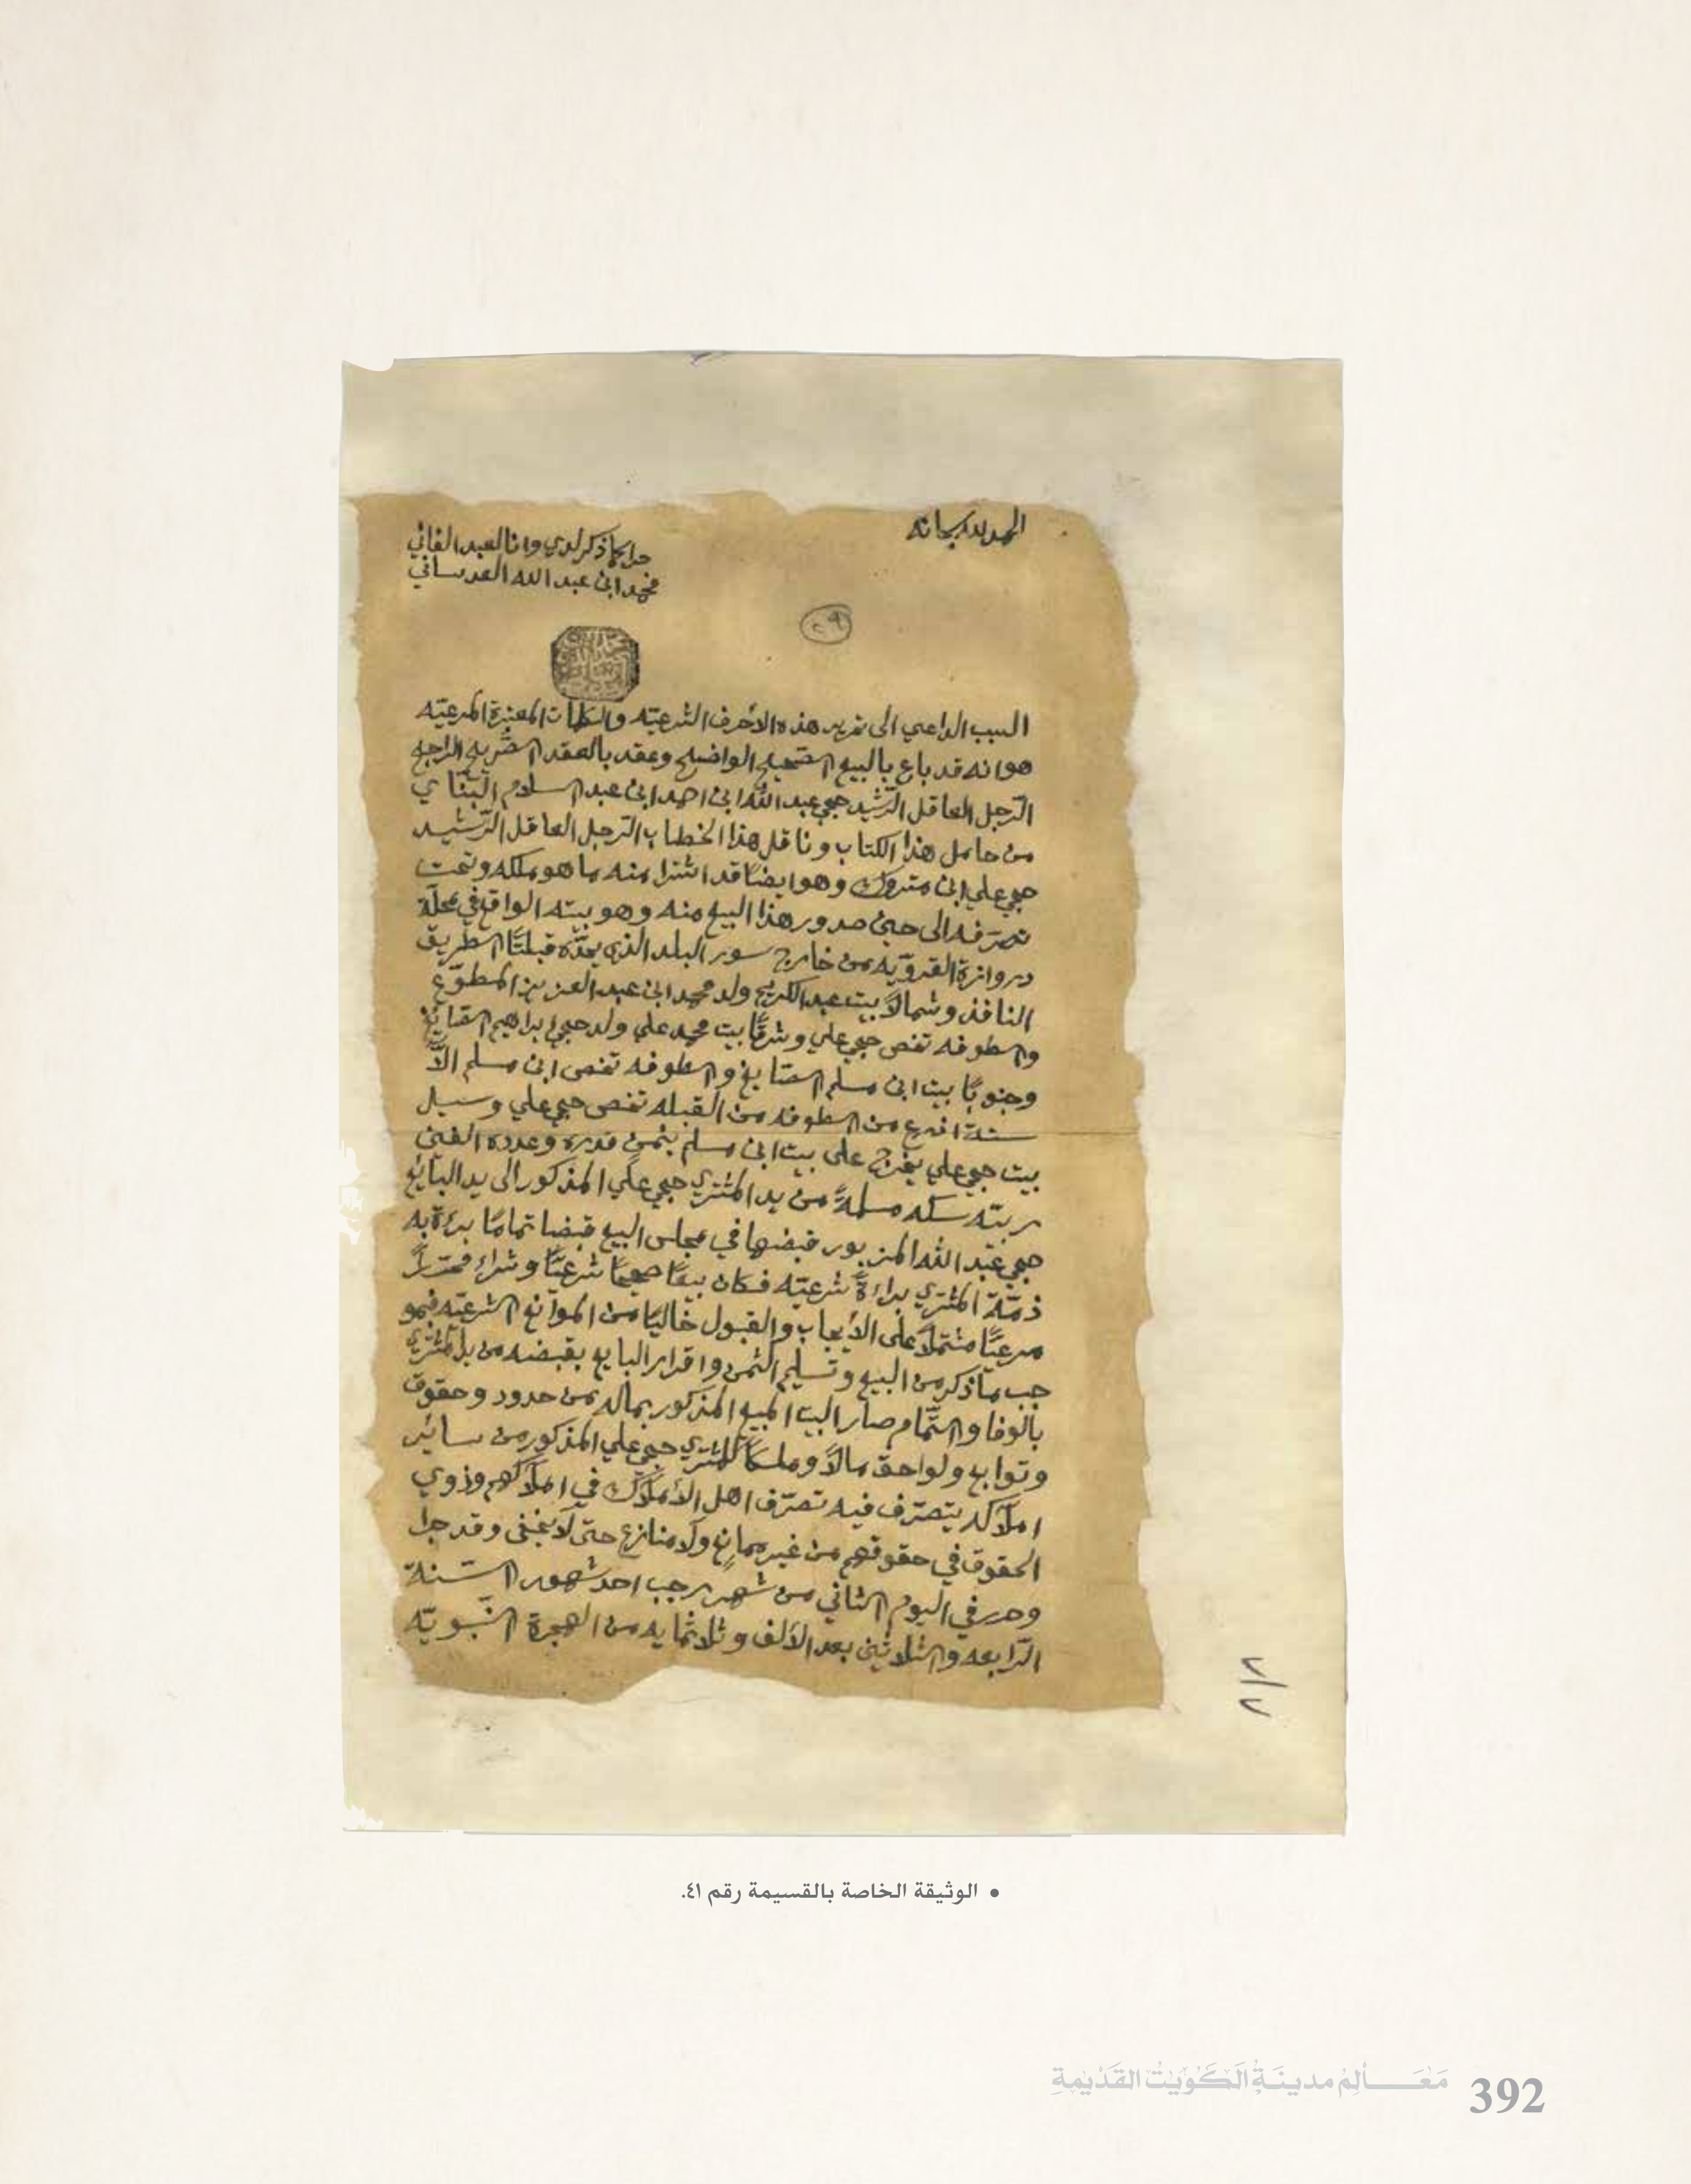 الحمد لله سبحانه
جرا كما ذكر لدي وانا العبد الفاني
محمد ابن عبد الله العدساني
٢٩
السبب الداعي الى تحرير هذه الأحرف الشرعيّه والكلمات المعتبرة المرعيّه
هو انه قد باع بالبيع الصّحيح الواضح وعقد بالعقد الصّريح الراجح
الرّجل العاقل الرّشيد حجي عبد اللّه ابن احمد ابن عبد السلام البنّاي
من حامل هذا الكتاب وناقل هذا الخطاب الرّجل العاقل الرّشيد
حجي علي ابن متروك وهو ايضًا قد اشترا منه ما هو ملكه وتحت
تصرّفه الى حين صدور هذا البيع منه وهو بيته الواقع في محلّة
دروازة القرويّه من خارج سور البلد الذي يحدّه قبلتًا الطريق
النافذ وشمالًا بيت عبد الكريم ولد محمد ابن عبد العزيز المطوّع
والطوفه تخص حجي علي وشرقًا بيت محمد علي ولد حجي ابراهيم الصّايغ
وجنوبًا بيت ابن مسلم الصّايغ والطوفه تخص ابن مسلم الّا
ستة اذرع من الطوفه من القبله تخص حجي علي وسيل
بيت حجي علي يخرج على بيت ابن مسلم بثمن قدره وعدده الفين
ربيّه سكه مسلمةً من يد المشتري حجي علي المذكور الى يد البايع
حجي عبد اللّه المزبور قبضها في مجلس البيع قبضا تمامًا برءة به
ذمّة المشتري براءةً شرعيّه فكان بيعًا صحيحًا شرعيًّا وشراء محرّرًا
مرعيًّا مشتملًا على الأيجاب والقبول خاليًا من الموانع الشرعيّه فبمو
جب ما ذكر من البيع وتسليم الثمن واقرار البايع بقبضه من يد المشتري
بالوفا والتّمام صار البيت المبيع المذكور بماله من حدود وحقوق
وتوابع ولواحق مالًا وملكًا للمشتري حجي علي المذكور من سائر
املاكه يتصرّف فيه تصرّف اهل الأملاك في املاكهم وذوي
الحقوق في حقوقهم من غير ممانع ولا منازع حتّى لا يخفى وقد جرا
وحرر في اليوم الثاني من شهر رجب احد شهور السّنة
الرّابعه والثلاثين بعد الألف وثلاثمايه من الهجرة النّبويّه
• الوثيقة الخاصة بالقسيمة رقم ٤١.
مَعَالِمُ مدينَةِ الكُوَيْتِ القَدِيْمَةِ 392